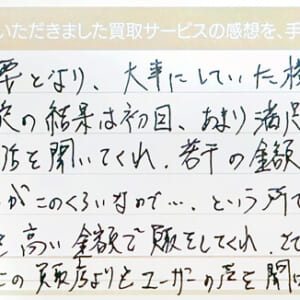 いただきました買取サービスの感想を、手
要となり、大事にしていた
の結果は初回、あまり満足
を聞いてくれ。若干の金額
がこのくらいなので…、という所で
高い金額で販をしてくれ、とて
の買取店よりもユーザーの声を聞